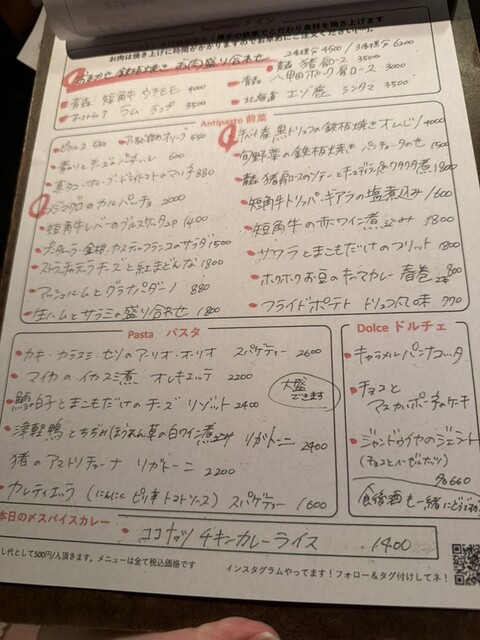 Secondo メイン
お肉は焼き上げに時間がかかりますのでお早めにご注文ください
おまかせ 鉄板焼き お肉盛り合わせ 2名様分 4500 / 3名様分 6200
青森 短角牛 ウチモモ 4000
ラム ランプ 3500
青森 猪肩ロース 3500
青森 八甲田ポーク肩ロース 3000
北海道 エゾ鹿 シンタマ 3500
Antipasto 前菜
ピクルス
オリーブ
600
真ダコ・オリーブ・ドライトマトのマリネ 880
シマアジのカルパッチョ 2000
短角牛レバーのブルスケッタ 1400
カステルフランコのサラダ 1500
ストラッチャテッラチーズと紅まどんな 1800
マッシュルームとグラナパダーノ 880
生ハムとサラミの盛り合わせ 1800
黒トリュフの鉄板焼きオムレツ 4000
旬野菜の鉄板焼き バーニャカウダのせ 1500
1800
短角牛トリッパ・ギアラの塩煮込み 1600
短角牛の赤ワイン煮込み 1800
サワラとまこもだけのフリット 1800
ホクホクお豆のキーマカレー 春巻 2本 800
フライドポテト トリュフ風味 770
Pasta パスタ
カキ・カラスミ・セリのアーリオ・オーリオ スパゲティー 2600
マイカのイカスミ煮 オレキエッテ 2200
鱈白子とまこもだけのチーズリゾット 2400
津軽鴨とちぢみほうれん草の白ワイン煮込み リガトーニ 2400
猪のアマトリチャーナ リガトーニ 2200
カレッティエッラ (にんにく ピリ辛 トマトソース) スパゲティー 1600
大盛できます
Dolce ドルチェ
キャラメルパンナコッタ
チョコとマスカルポーネのケーキ
ジャンドゥイヤのジェラート
(チョコとヘーゼルナッツ)
各660
食後酒も一緒にどうぞ
本日の〆スパイスカレー
ココナッツ チキンカレーライス 1400
し代として500円/人頂きます。メニューは全て税込価格です
インスタグラムやってます！フォロー＆タグ付けしてネ！